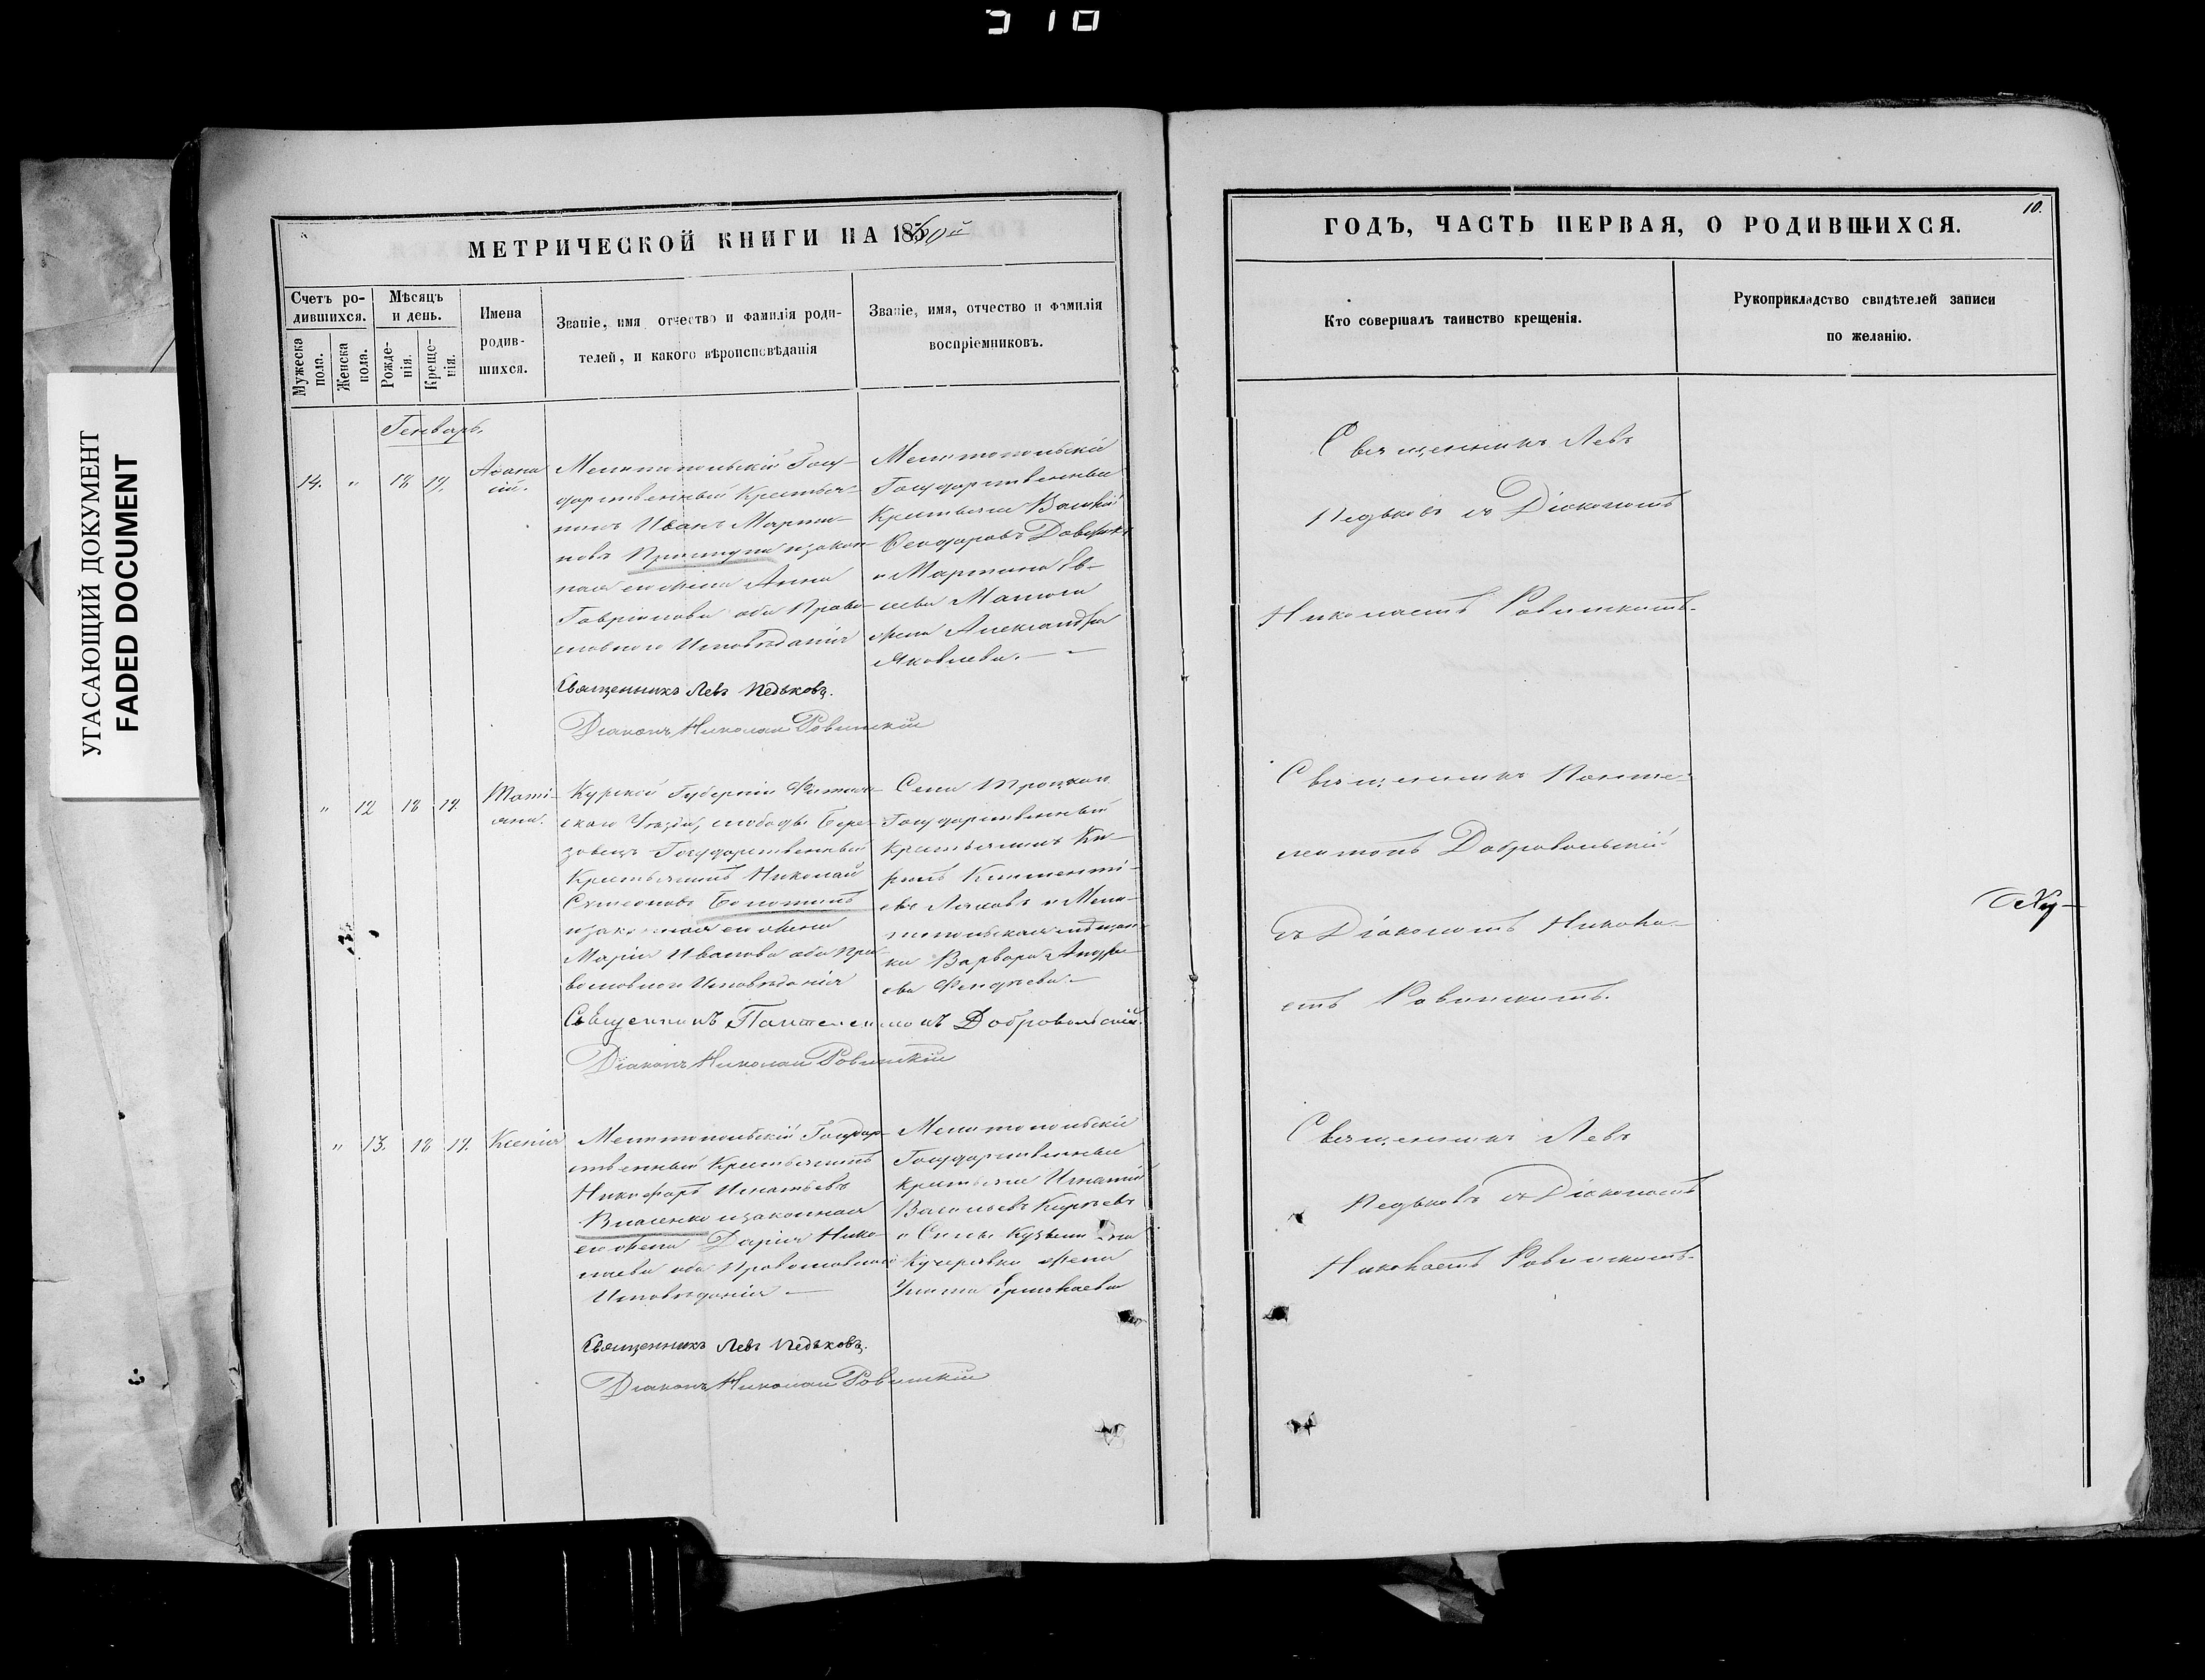 310
УГАСАЮЩИЙ ДОКУМЕНТ
FADED DOCUMENT
МЕТРИЧЕСКОЙ КНИГИ НА 1860й
Счетъ родившихся.
Мужеска пола.
Женска пола.
Мѣсяцъ и день.
Рожденія.
Крещенія.
Имена родившихся.
Званіе, имя отчество и фамилія родителей, и какого вѣроисповѣданія
Званіе, имя, отчество и фамилія воспріемниковъ.
Генварь
14. " 18 19. Аѳанасій.
Мелитопольскій Госу-
дарственный Крестья-
нинъ Иванъ Марти-
новъ и закон-
ная его жена Анна
Гавріилова оба Право-
славнаго Исповѣданія
Мелитопольскій
Государственный
Крестьяне Василій
Ѳеодоровъ
и Мартина Ев-
сеева
жена Александра
Яковлева.
Священникъ Левъ Педьковъ.
Діаконъ Николай Ровинскій
" 12 18 19. Татіяна.
Курской Губерніи
скаго Уѣзда, слободы Бере-
зовецъ Государственный
Крестьянинъ Николай
Симеоновъ Болотинъ
и законная его жена
Марія Иванова оба Пра-
вославнаго Исповѣданія
Села Троцкаго
Государственный
Крестьянинъ Ки-
рилъ Клименті-
евъ Ляховъ и Мели-
топольская мѣщан-
ка Варвара Андре-
ева
Священникъ Пантелеимонъ Добровольскій.
Діаконъ Николай Ровинскій
" 13. 18 19. Ксенія
Мелитопольскій Государ-
ственный Крестьянинъ
Никифоръ Игнатьевъ
Власенко и законная
его жена Дарія Нико-
лаева оба Православнаго
Исповѣданія
Мелитопольскій
Государственный
Крестьяне Игнатій
Васильевъ
и Силы Кузьмина
Кучерявко жена
Ермолаева
Священникъ Левъ Педьковъ.
Діаконъ Николай Ровинскій
ГОДЪ, ЧАСТЬ ПЕРВАЯ, О РОДИВШИХСЯ.
10.
Кто совершалъ таинство крещенія.
Рукоприкладство свидѣтелей записи
по желанію.
Священникъ Левъ
Педьковъ съ Діакономъ
Николаемъ Ровинскимъ.
Священникъ Панте-
леимонъ Добровольскій
съ Діакономъ Никола-
емъ Ровинскимъ.
Священникъ Левъ
Педьковъ съ Діакономъ
Николаемъ Ровинскимъ.